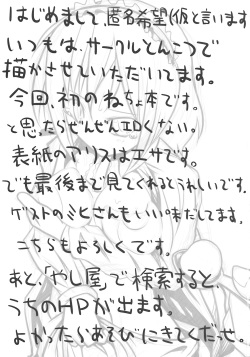 はじめまして、匿名希望(仮と言います
いつもは、サークルとんこつで
描かさせていただいてます。
今回、初のねちょ本です。
と思ったらぜんぜんエロくない。
表紙のアリスはエサです。
でも最後まで見てくれるとうれしいです。
ゲストのミヒさんもいい味だしてます。
こちらもよろしくです。
あと、「やし屋」で検索すると、
うちのHPが出ます。
よかったらあそびにきてくだっせ。